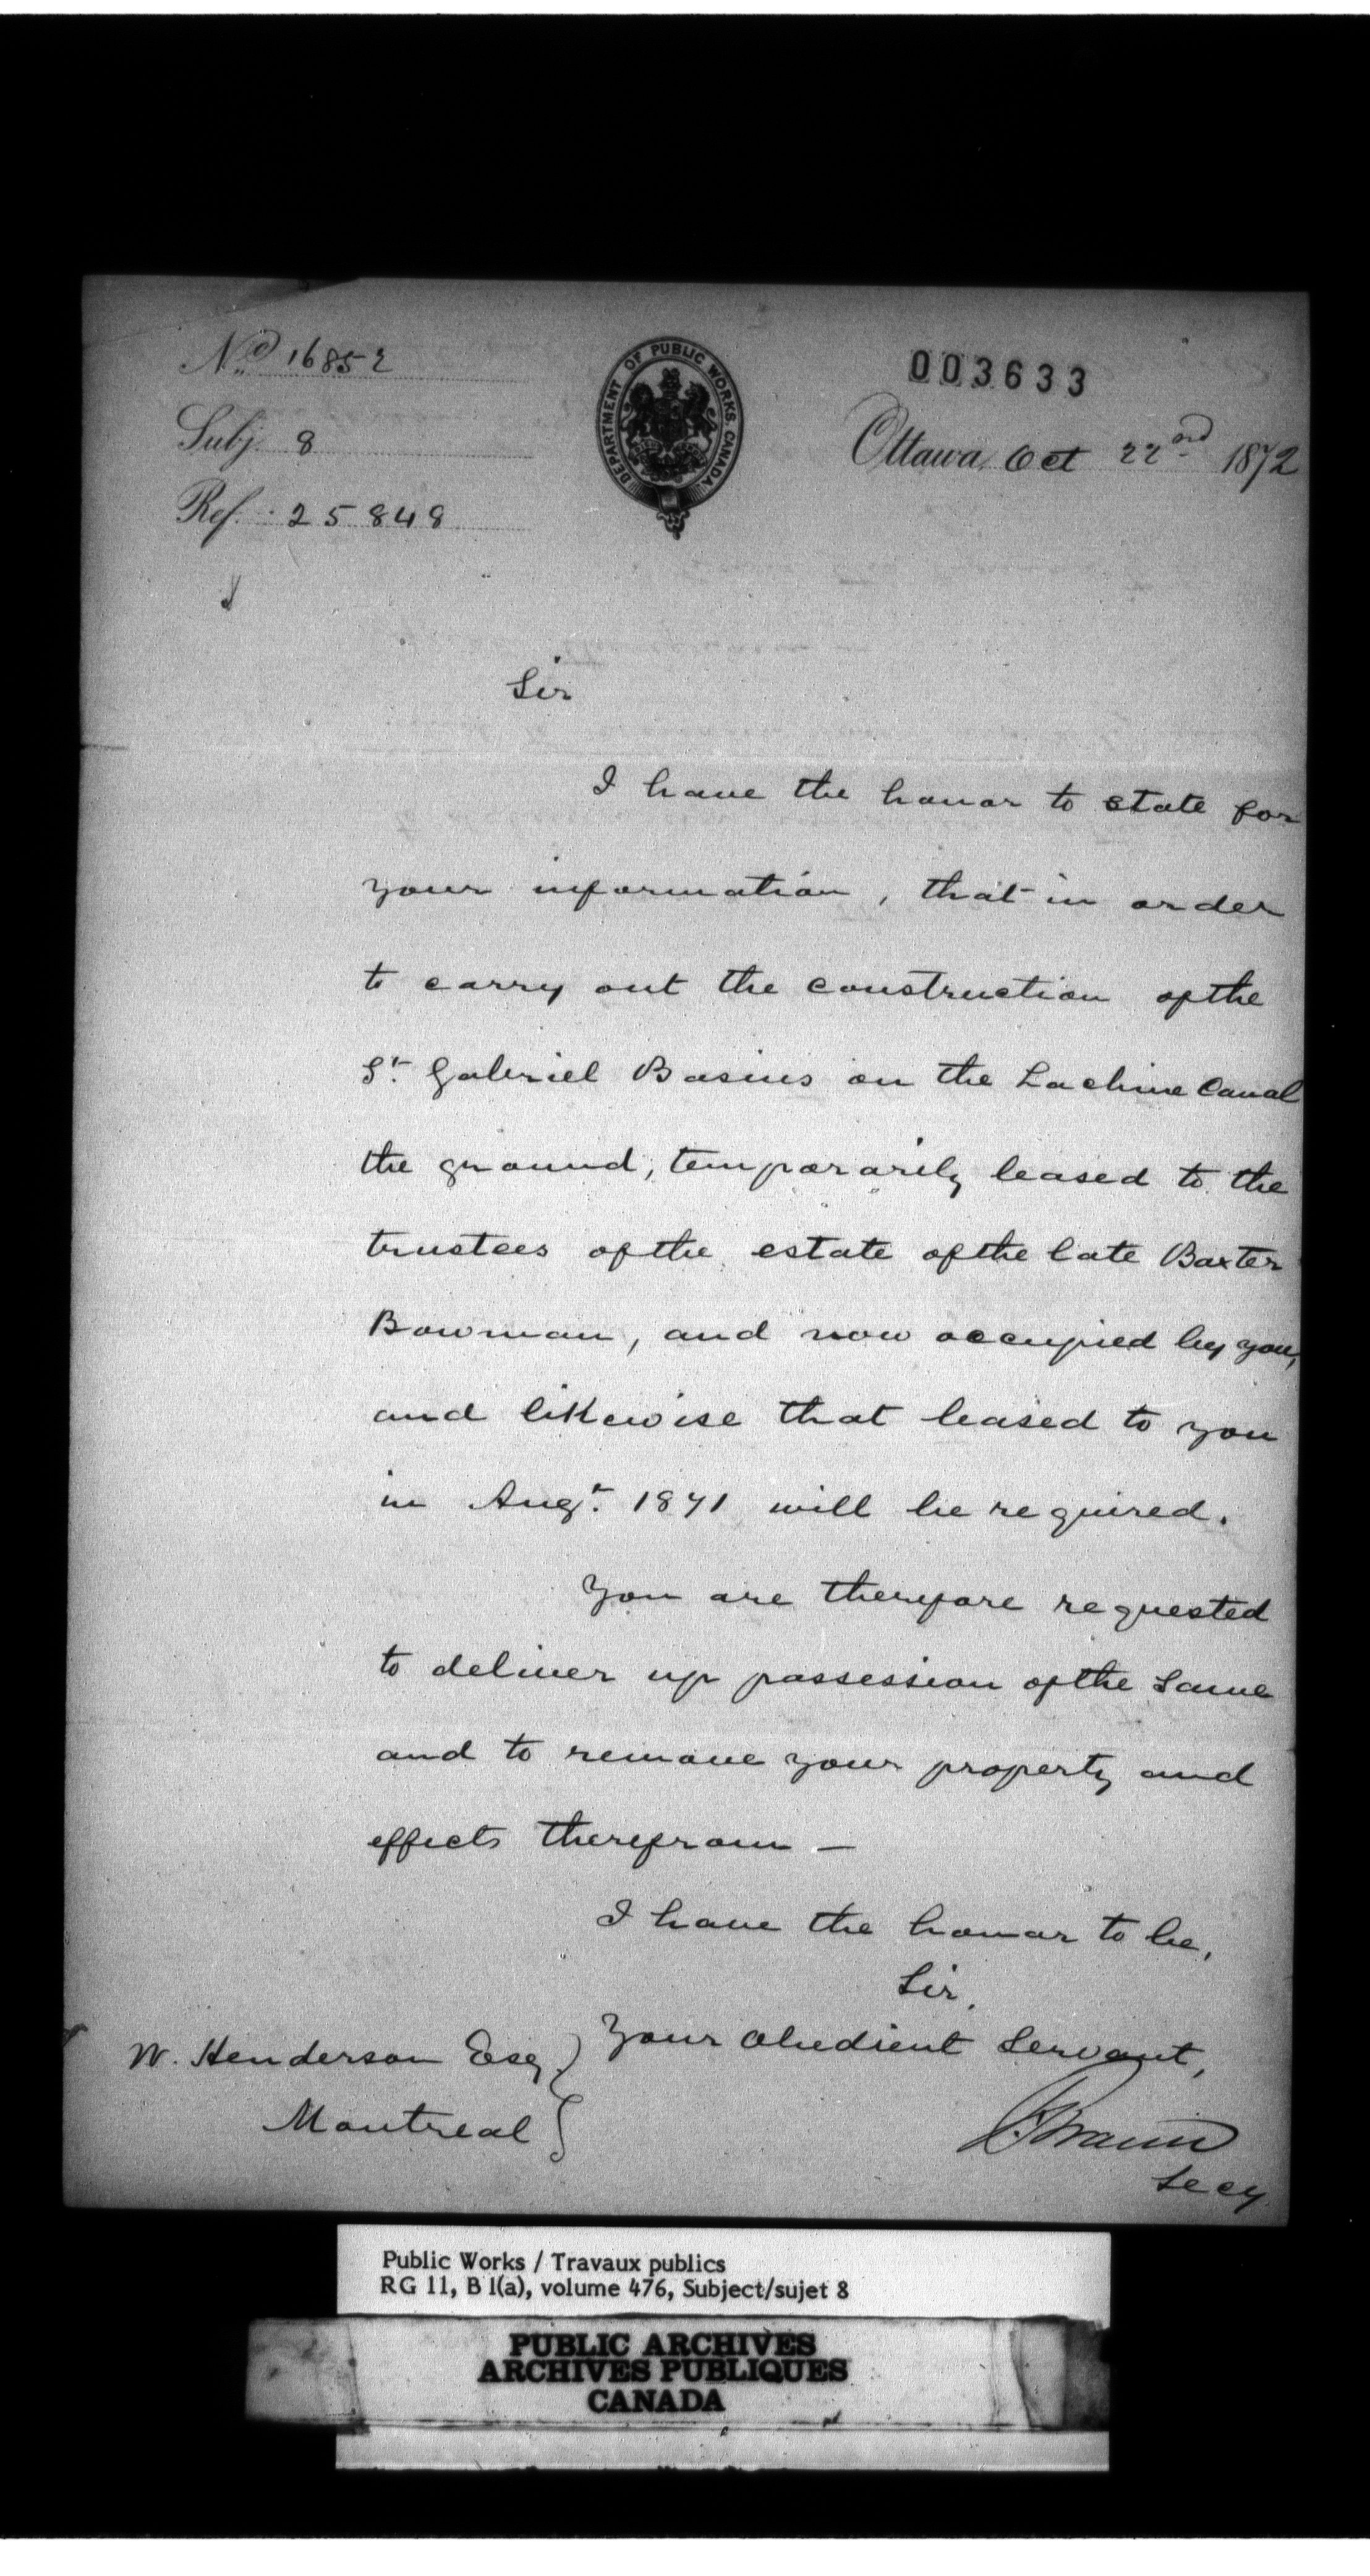 No 16852
Subj. 8
Ref. 25848
DEPARTMENT OF PUBLIC WORKS. CANADA
003633
Ottawa, Oct 22nd 1872
Sir
I have the honor to state for
your information, that in order
to carry out the construction of the
St. Gabriel Basins on the Lachine Canal
the ground, temporarily leased to the
trustees of the estate of the late Baxter
Bowman, and now occupied by you,
and likewise that leased to you
in Augt. 1871 will be required.
You are therefore requested
to deliver up possession of the same
and to remove your property and
effects therefrom —
I have the honor to be,
Sir,
Your obedient Servant,
W. Henderson Esq
Montreal
F Braun
Secy
Public Works / Travaux publics
RG 11, B 1(a), volume 476, Subject/sujet 8
PUBLIC ARCHIVES
ARCHIVES PUBLIQUES
CANADA